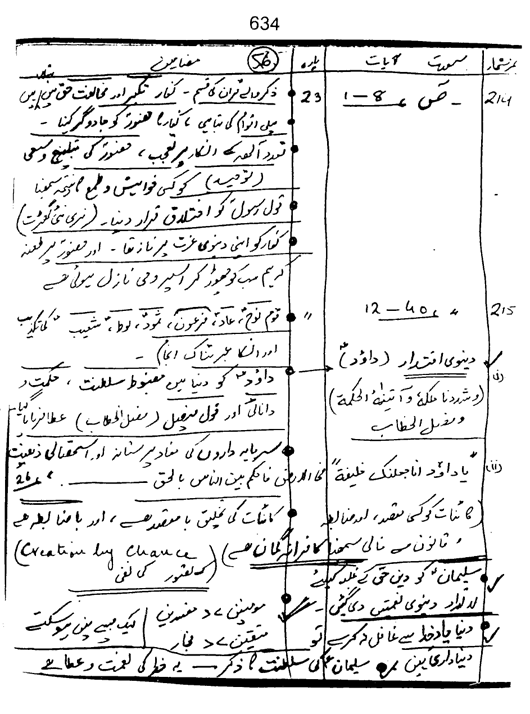 634
نمبر شمار سورت آیات پارہ 56 مضامین
214 - صٓ 1 - 8 23 ذکر والے قرآن کی قسم - کفار تکبر اور مخالفت حق میں ہیں
پہلی اقوام کی تباہی، کفار کا حضورؐ کو جادوگر کہنا -
تعدد آلھہ کے انکار پر تعجب، حضورؐ کی تبلیغ و سعی
(توحید) کو کسی خواہش و طمع کا نتیجہ سمجھنا
قول رسولؐ کو اختلاق قرار دینا - (نری نئی گھڑت)
کفار کو اپنی دنیوی عزت پر ناز تھا - اور حضورؐ پر طعنہ
کہ ہم سب کو چھوڑ کر اس پر وحی نازل ہوئی ہے
215 〃 12 - 40 〃 قوم نوحؑ، عاد، فرعون، ثمود، لوط، شعیبؑ کی تکذیب
اور انکا عبرتناک انجام -
(i) دنیوی اقتدار (داؤدؑ) داؤدؑ کو دنیا میں مضبوط سلطنت، حکمت و
(وشددنا ملکہ و آتینٰہ الحکمۃ دانائی اور قول فیصل (فصل الخطاب) عطا فرمایا گیا
و فصل الخطاب سرمایہ داروں کی مفاد پرستانہ اور استحصالی ذہنیت
(ii) "یا داؤد انا جعلنٰک خلیفۃ" فی الارض فاحکم بین الناس بالحق - 26
(کائنات کو کسی مقصد، اور ضابطہ کائنات کی تخلیق با مقصد ہے، اور باضابطہ ہے
و قانون سے خالی سمجھنا کافرانہ گمان ہے) (Creation by chance کے تصور کی نفی)
سلیمانؑ کو دین حق کے غلبہ کیلئے
دنیوی نعمتیں دی گئیں - مومنین >< مفسدین
متقین >< فجار ایک جیسے نہیں ہو سکتے
دنیا یاد خدا سے غافل نہ کرے تو
دنیاداری نہیں سلیمانؑ کی سلطنت کا ذکر — یہ خدا کی نعمت و عطا ہے